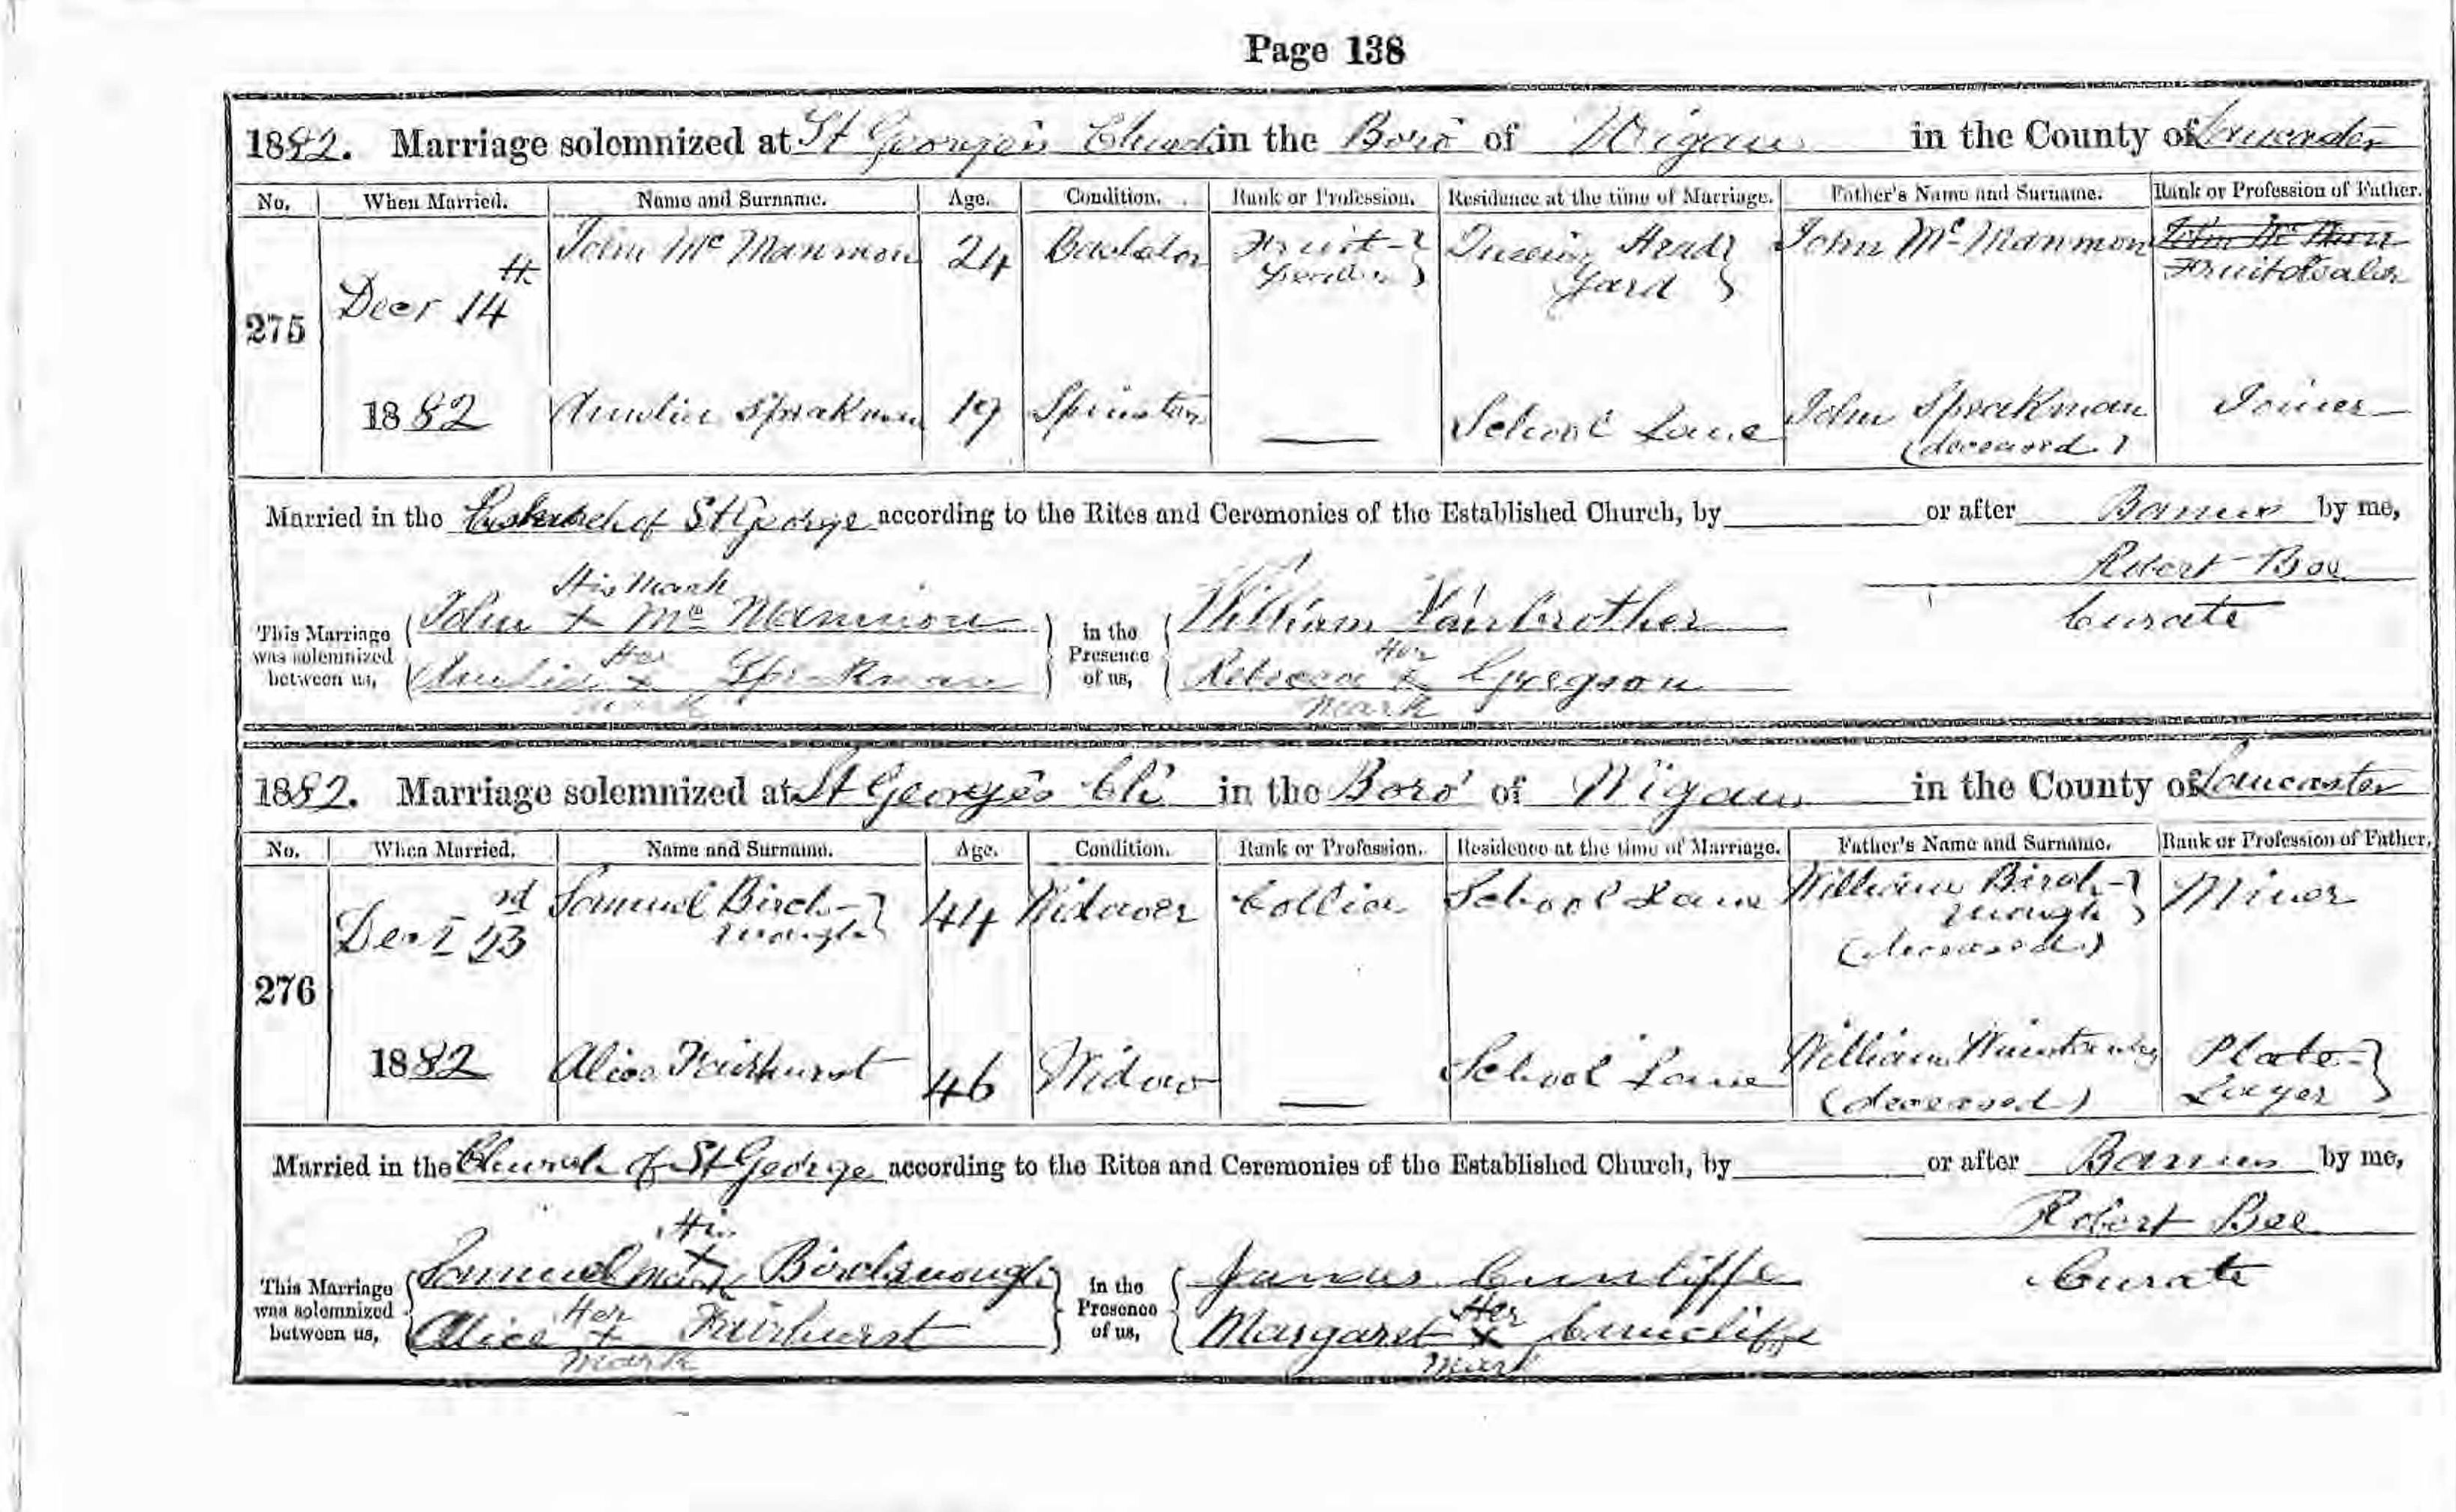 Page 138
1882. Marriage solemnized at St George's Church in the Boro' of Wigan in the County of Lancaster
No. When Married. Name and Surname. Age. Condition. Rank or Profession. Residence at the time of Marriage. Father's Name and Surname. Rank or Profession of Father.
John Mc Manmon 24 Bachelor Fruit- Queen's Head John Mc Manmon
th Yard Fruit Dealer
275 Decr 14
1882 Speakman 19 Spinster — School Lane John Speakman Joiner
(deceased)
Married in the Church of St George according to the Rites and Ceremonies of the Established Church, by or after Banns by me,
Robert Bee
Curate
His Mark
This Marriage was solemnized between us, John x Mc Manmon in the Presence of us, William Fairbrother
Her Her
x Speakman Rebecca x Gregson
mark mark
1882. Marriage solemnized at St George's Ch in the Boro' of Wigan in the County of Lancaster
No. When Married. Name and Surname. Age. Condition. Rank or Profession. Residence at the time of Marriage. Father's Name and Surname. Rank or Profession of Father.
rd Samuel Birch- 44 Widower Collier School Lane William Birch- Miner
Decr 23 nough nough
(deceased)
276
1882 Alice Fairhurst 46 Widow — School Lane William Plate-
(deceased) Layer
Married in the Church of St George according to the Rites and Ceremonies of the Established Church, by or after Banns by me,
Robert Bee
Curate
His
This Marriage was solemnized between us, Samuel x Birchnough in the Presence of us, James Cunliffe
Her Her
Alice x Fairhurst Margaret x Cunliffe
mark mark